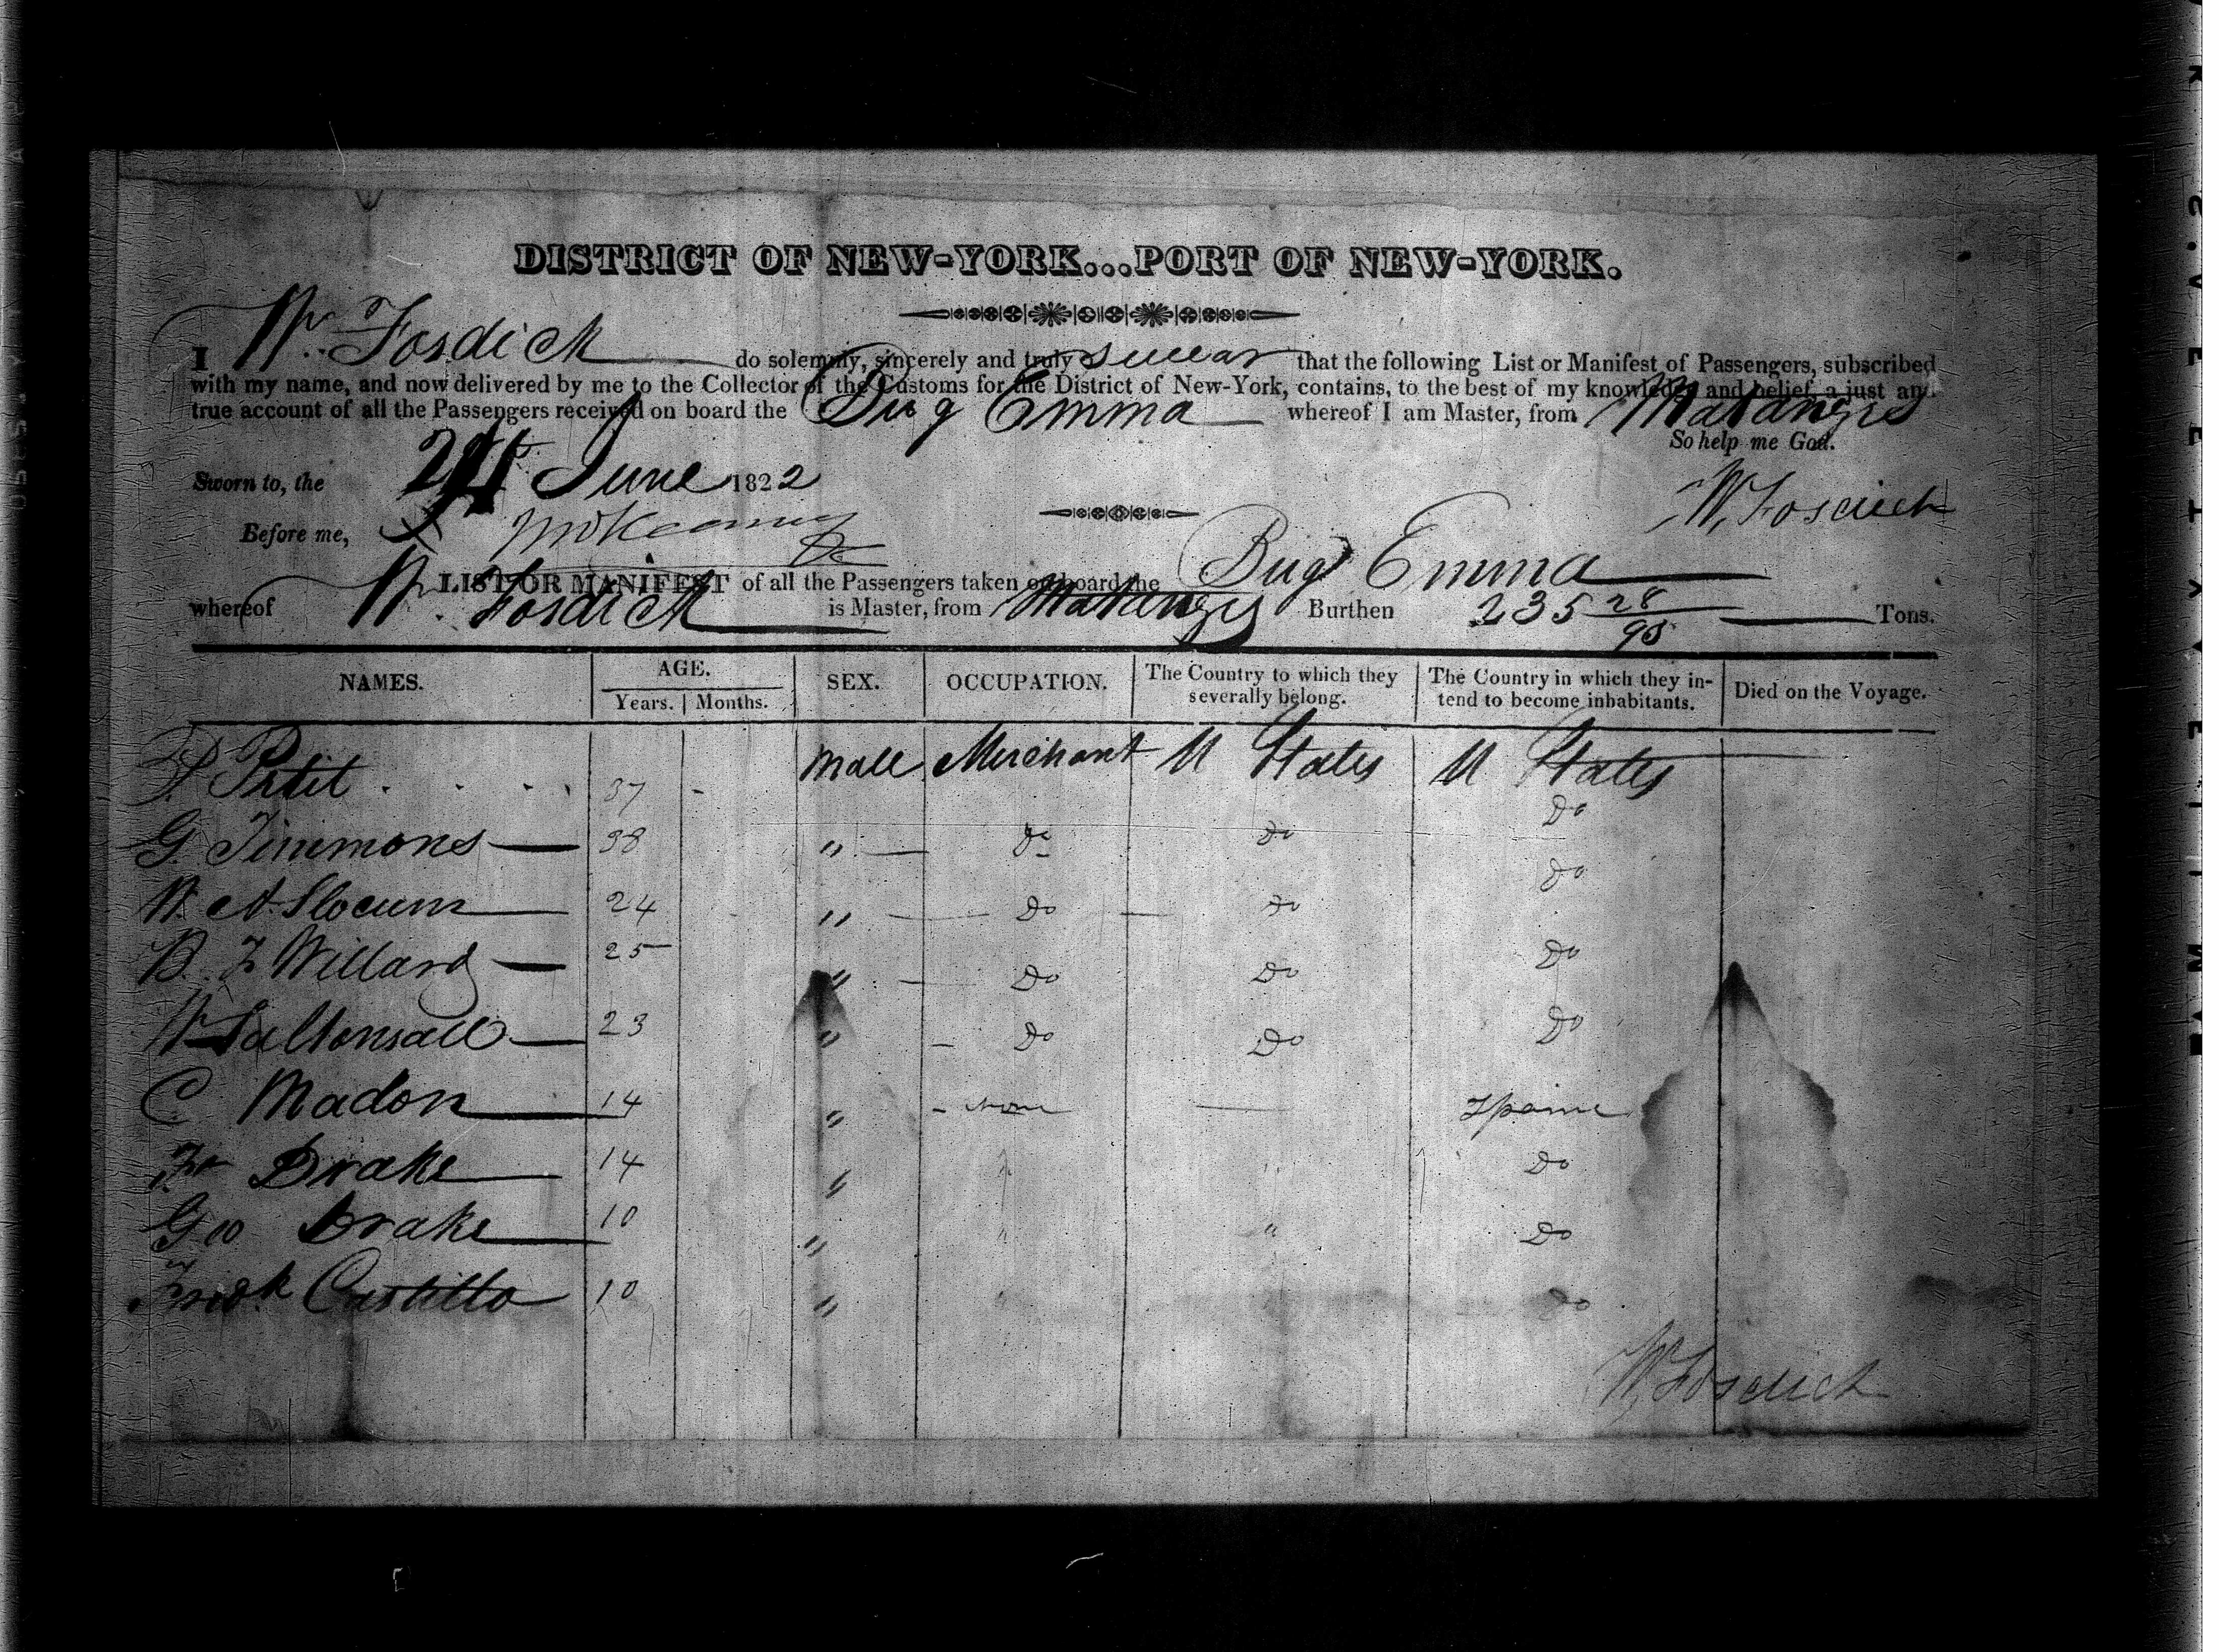 DISTRICT OF NEW-YORK...PORT OF NEW-YORK.
I W. Fosdick do solemnly, sincerely and truly swear that the following List or Manifest of Passengers, subscribed
with my name, and now delivered by me to the Collector of the Customs for the District of New-York, contains, to the best of my knowledge and belief, a just and
true account of all the Passengers received on board the Brig Emma whereof I am Master, from Matanzes
So help me God.
Sworn to, the 24 June 1822
W. Fosdick
Before me,
LIST OR MANIFEST of all the Passengers taken on board the Brig Emma
whereof W. Fosdick is Master, from Matanzes Burthen 235 28/95 Tons.
NAMES. AGE. Years. Months. SEX. OCCUPATION. The Country to which they severally belong. The Country in which they intend to become inhabitants. Died on the Voyage.
Petit 37 - Male Merchant U States U States
G. Timmons 38 " Do Do Do
W. A. Slocum 24 " Do Do Do
B. F Willard 25 " Do Do Do
W Saltonsall 23 " Do Do Do
C Madon 14 " none Spain
Fr Drake 14 " " " Do
Geo Drake 10 " " " Do
Fredk Castillo 10 " " Do
W Fosdick